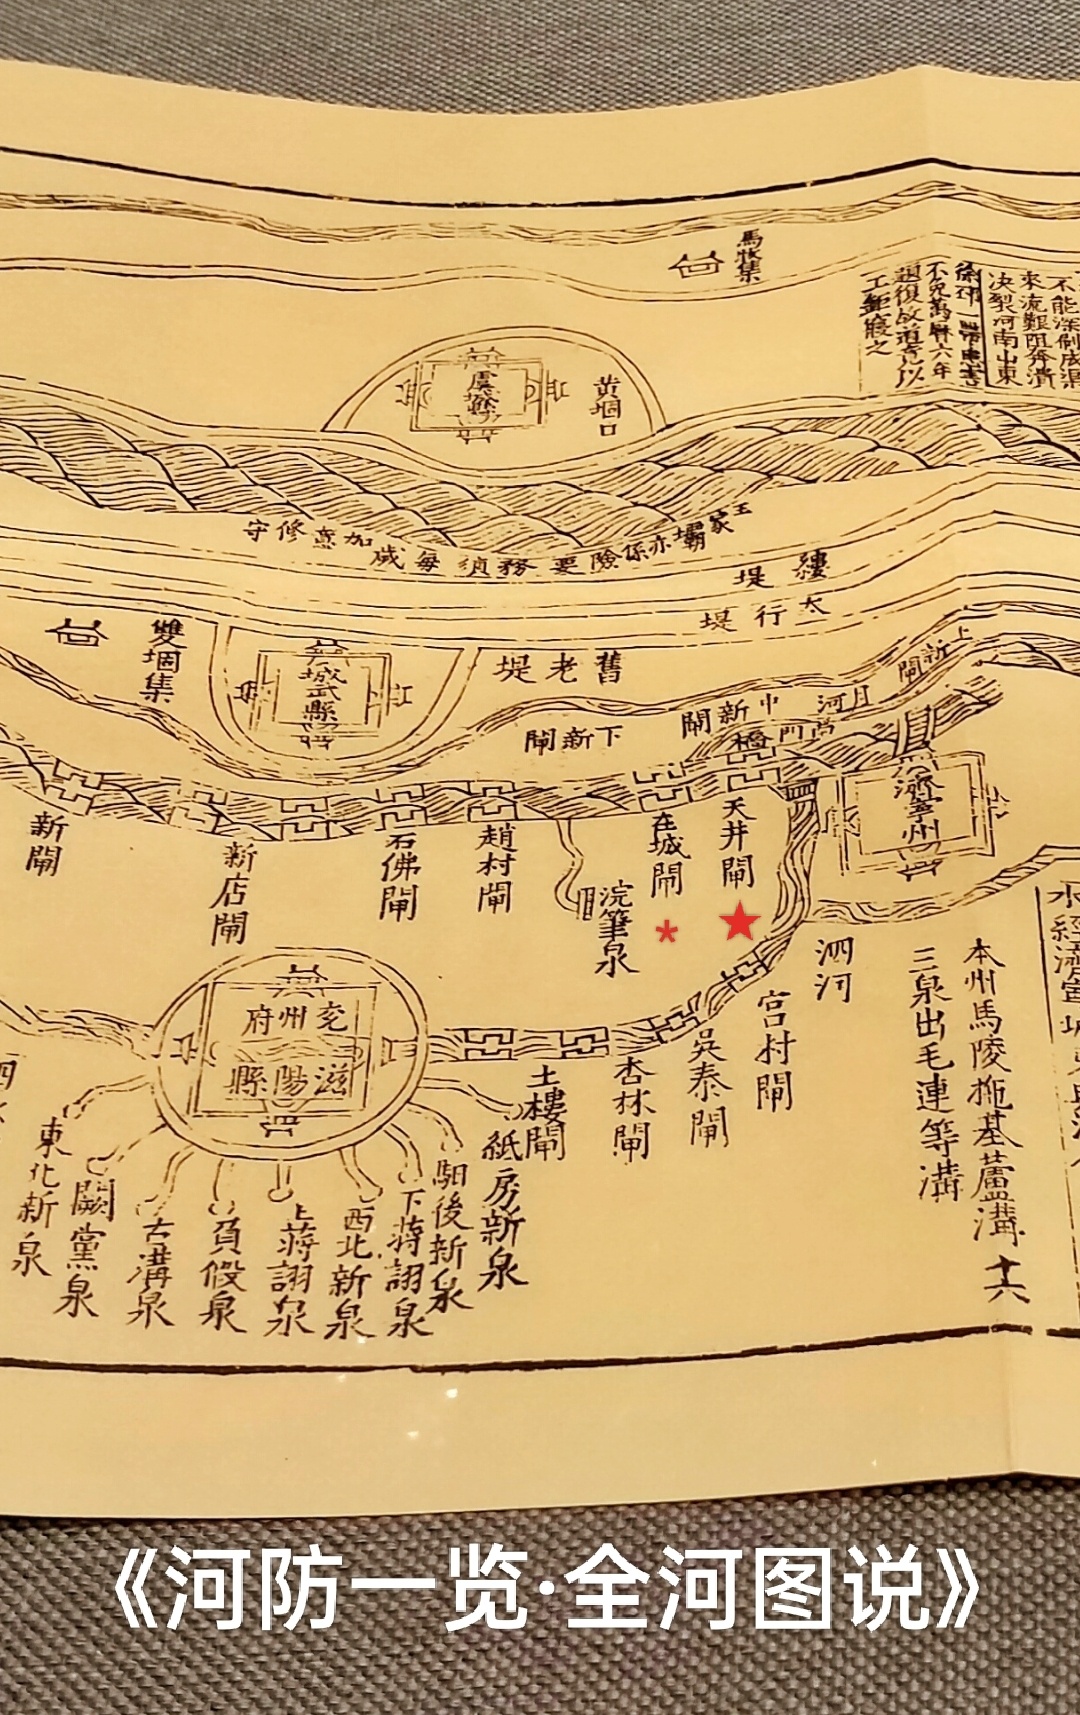 馬牧集
不能深刷成渠
來流艱阻奔潰
決裂河南山東
徐邳一帶患害
不免萬曆六年
題復故道竟以
工鉅寢之
虞城縣
黄堌口
王家壩亦係險要務須每歲加意修守
縷堤
太行堤
雙堌集
城武縣
舊老堤
上新閘
月河
中新閘
下新閘
橋
濟寧州
新閘
新店閘
石佛閘
趙村閘
浣筆泉
在城閘
天井閘
泗河
宫村閘
吳泰閘
杏林閘
土樓閘
本州馬陵拖基蘆溝
三泉出毛連等溝
十六
兖州府
滋陽縣
紙房新泉
駟後新泉
下蒋詡泉
西北新泉
上蒋詡泉
負假泉
古溝泉
闕黨泉
東北新泉
《河防一览·全河图说》